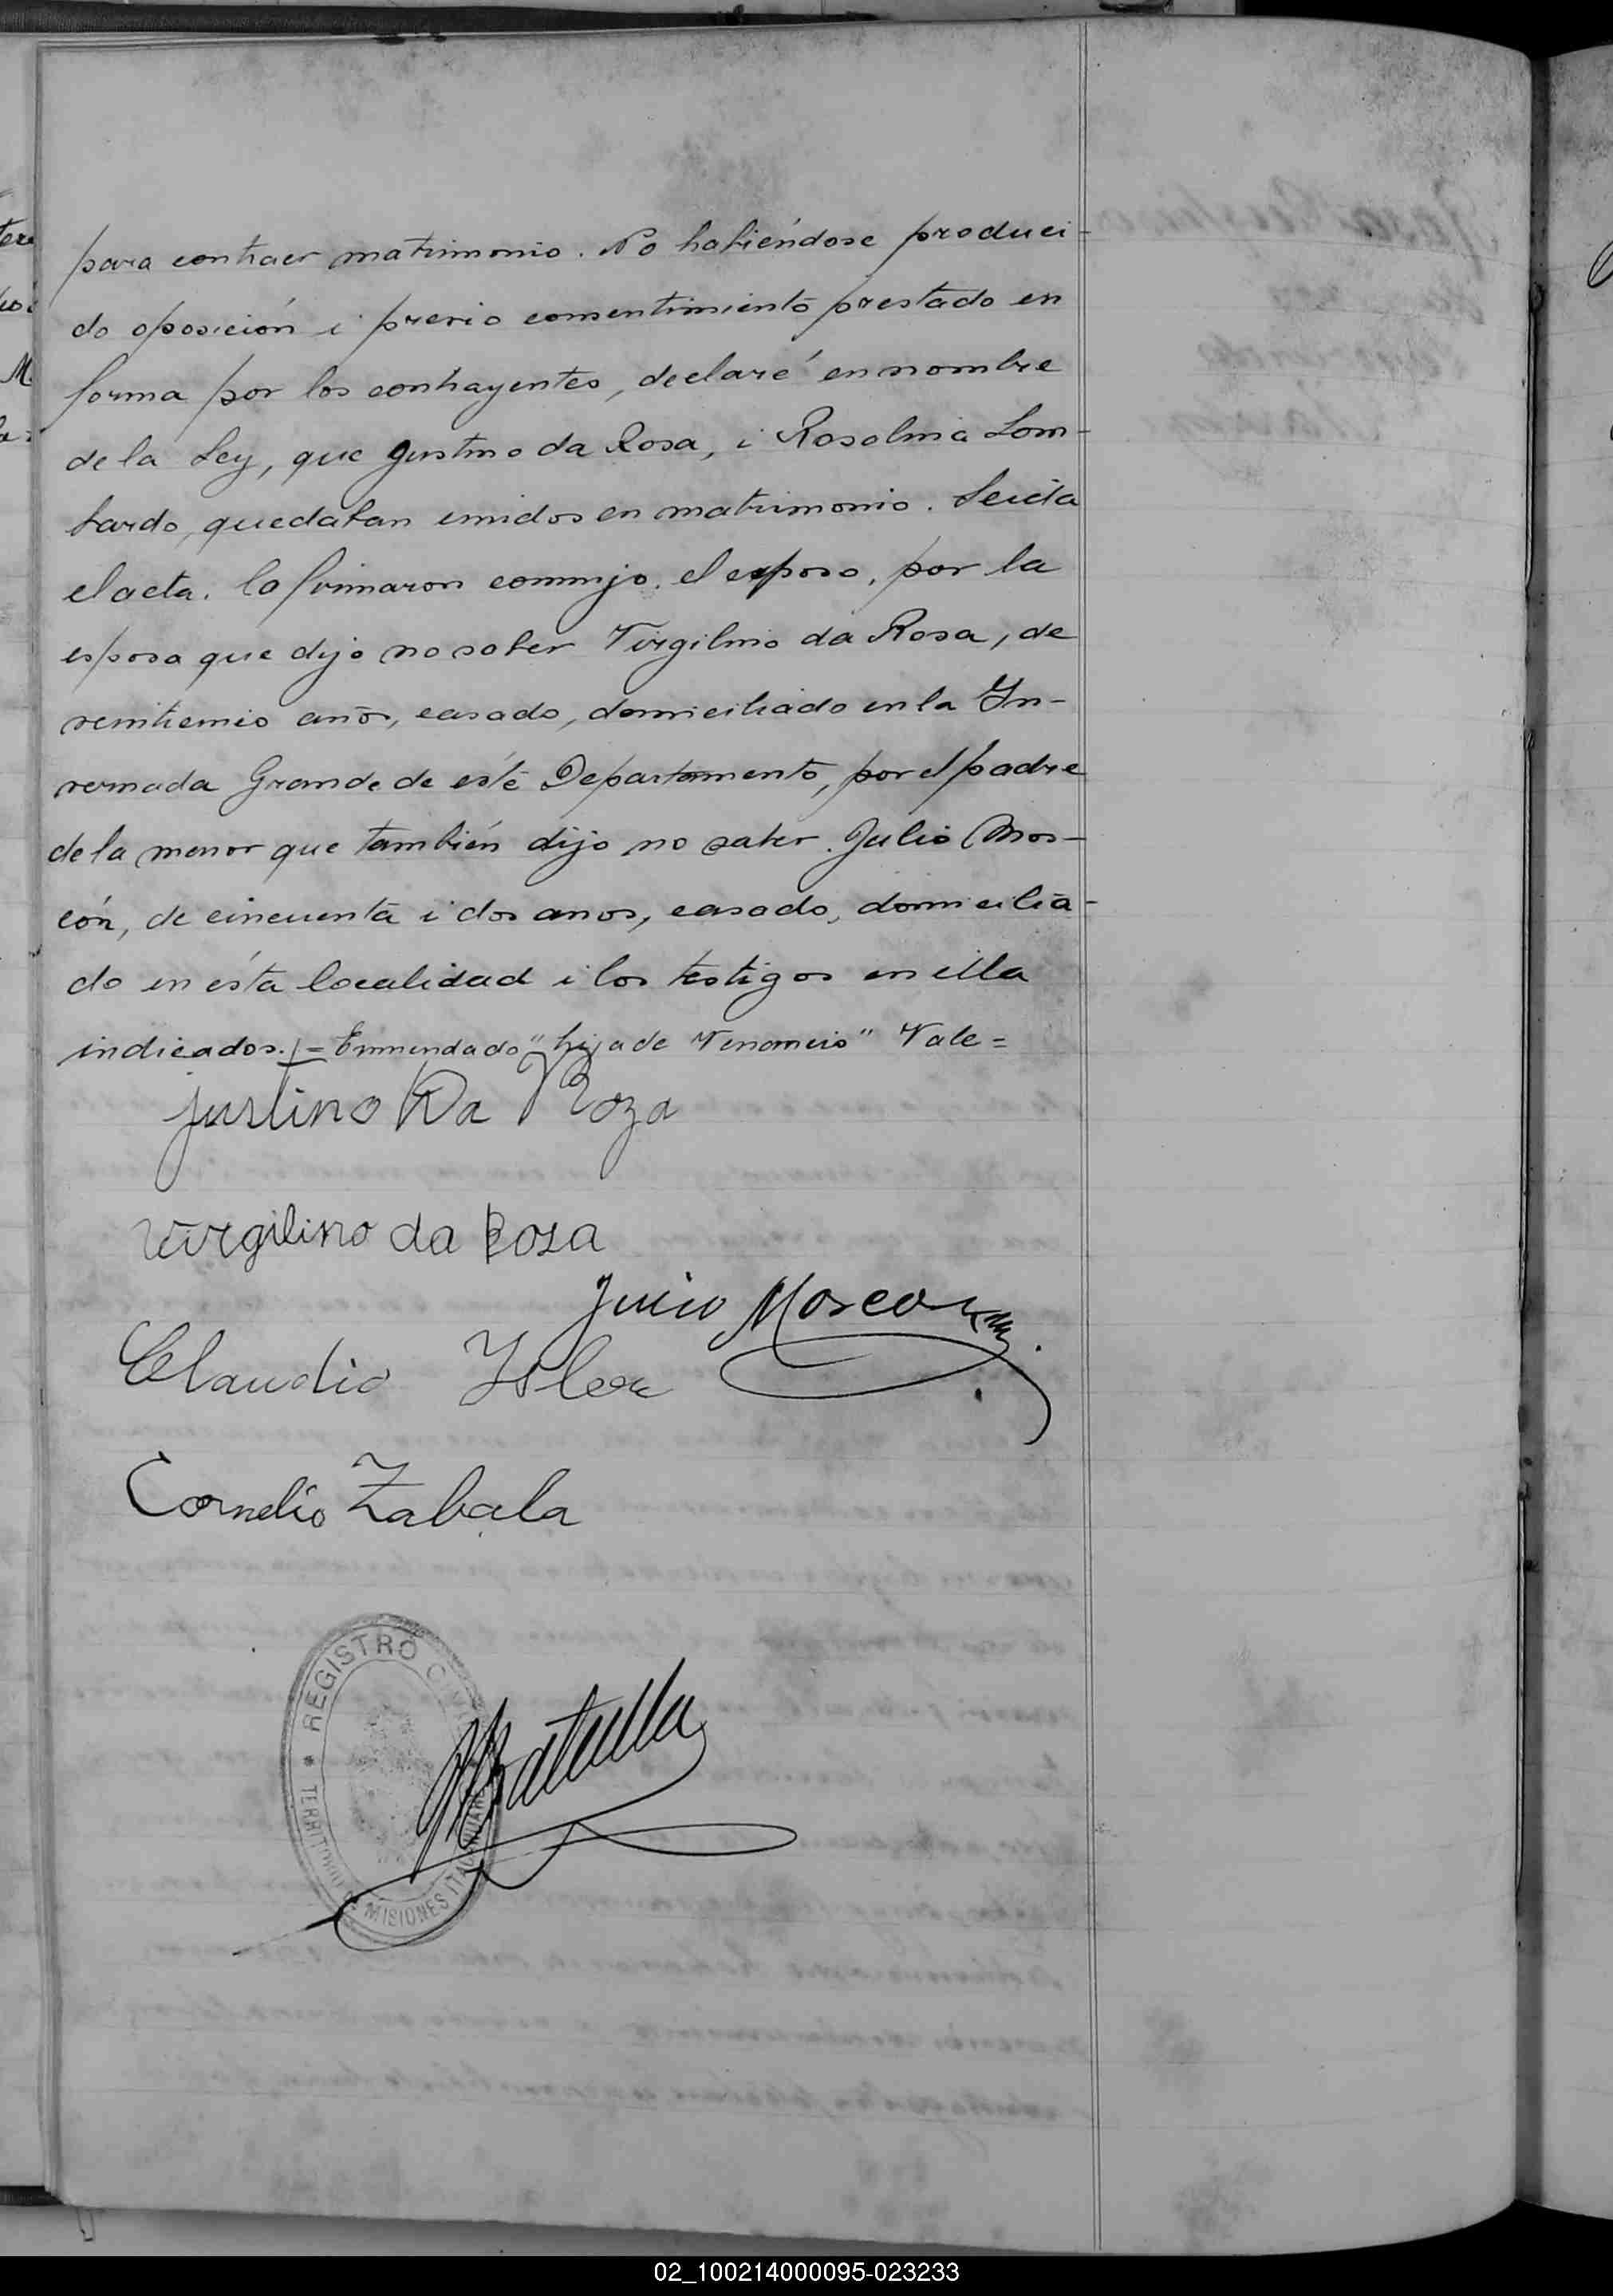 para contraer matrimonio. No habiéndose produci-
do oposición i previo consentimiento prestado en
forma por los contrayentes, declaré en nombre
de la Ley, que Justino da Rosa, i Rosalina Lom-
bardo, quedaban unidos en matrimonio. Leida
el acta. la firmaron conmigo, el esposo, por la
esposa que dijo no saber Virgilino da Rosa, de
años, casado, domiciliado en la In-
vernada Grande de éste Departamento, por el padre
de la menor que también dijo no saber. Julio Mos-
cón, de cincuenta i dos anos, casado, domicilia-
do en ésta localidad i los testigos en ella
indicados. = Enmendado "hija de Venancio" Vale =
Justino Da Roza
Virgilino da Rosa
Julio Moscon
Claudio Isler
Cornelio Zabala
REGISTRO CIVIL
TERRITORIO DE MISIONES